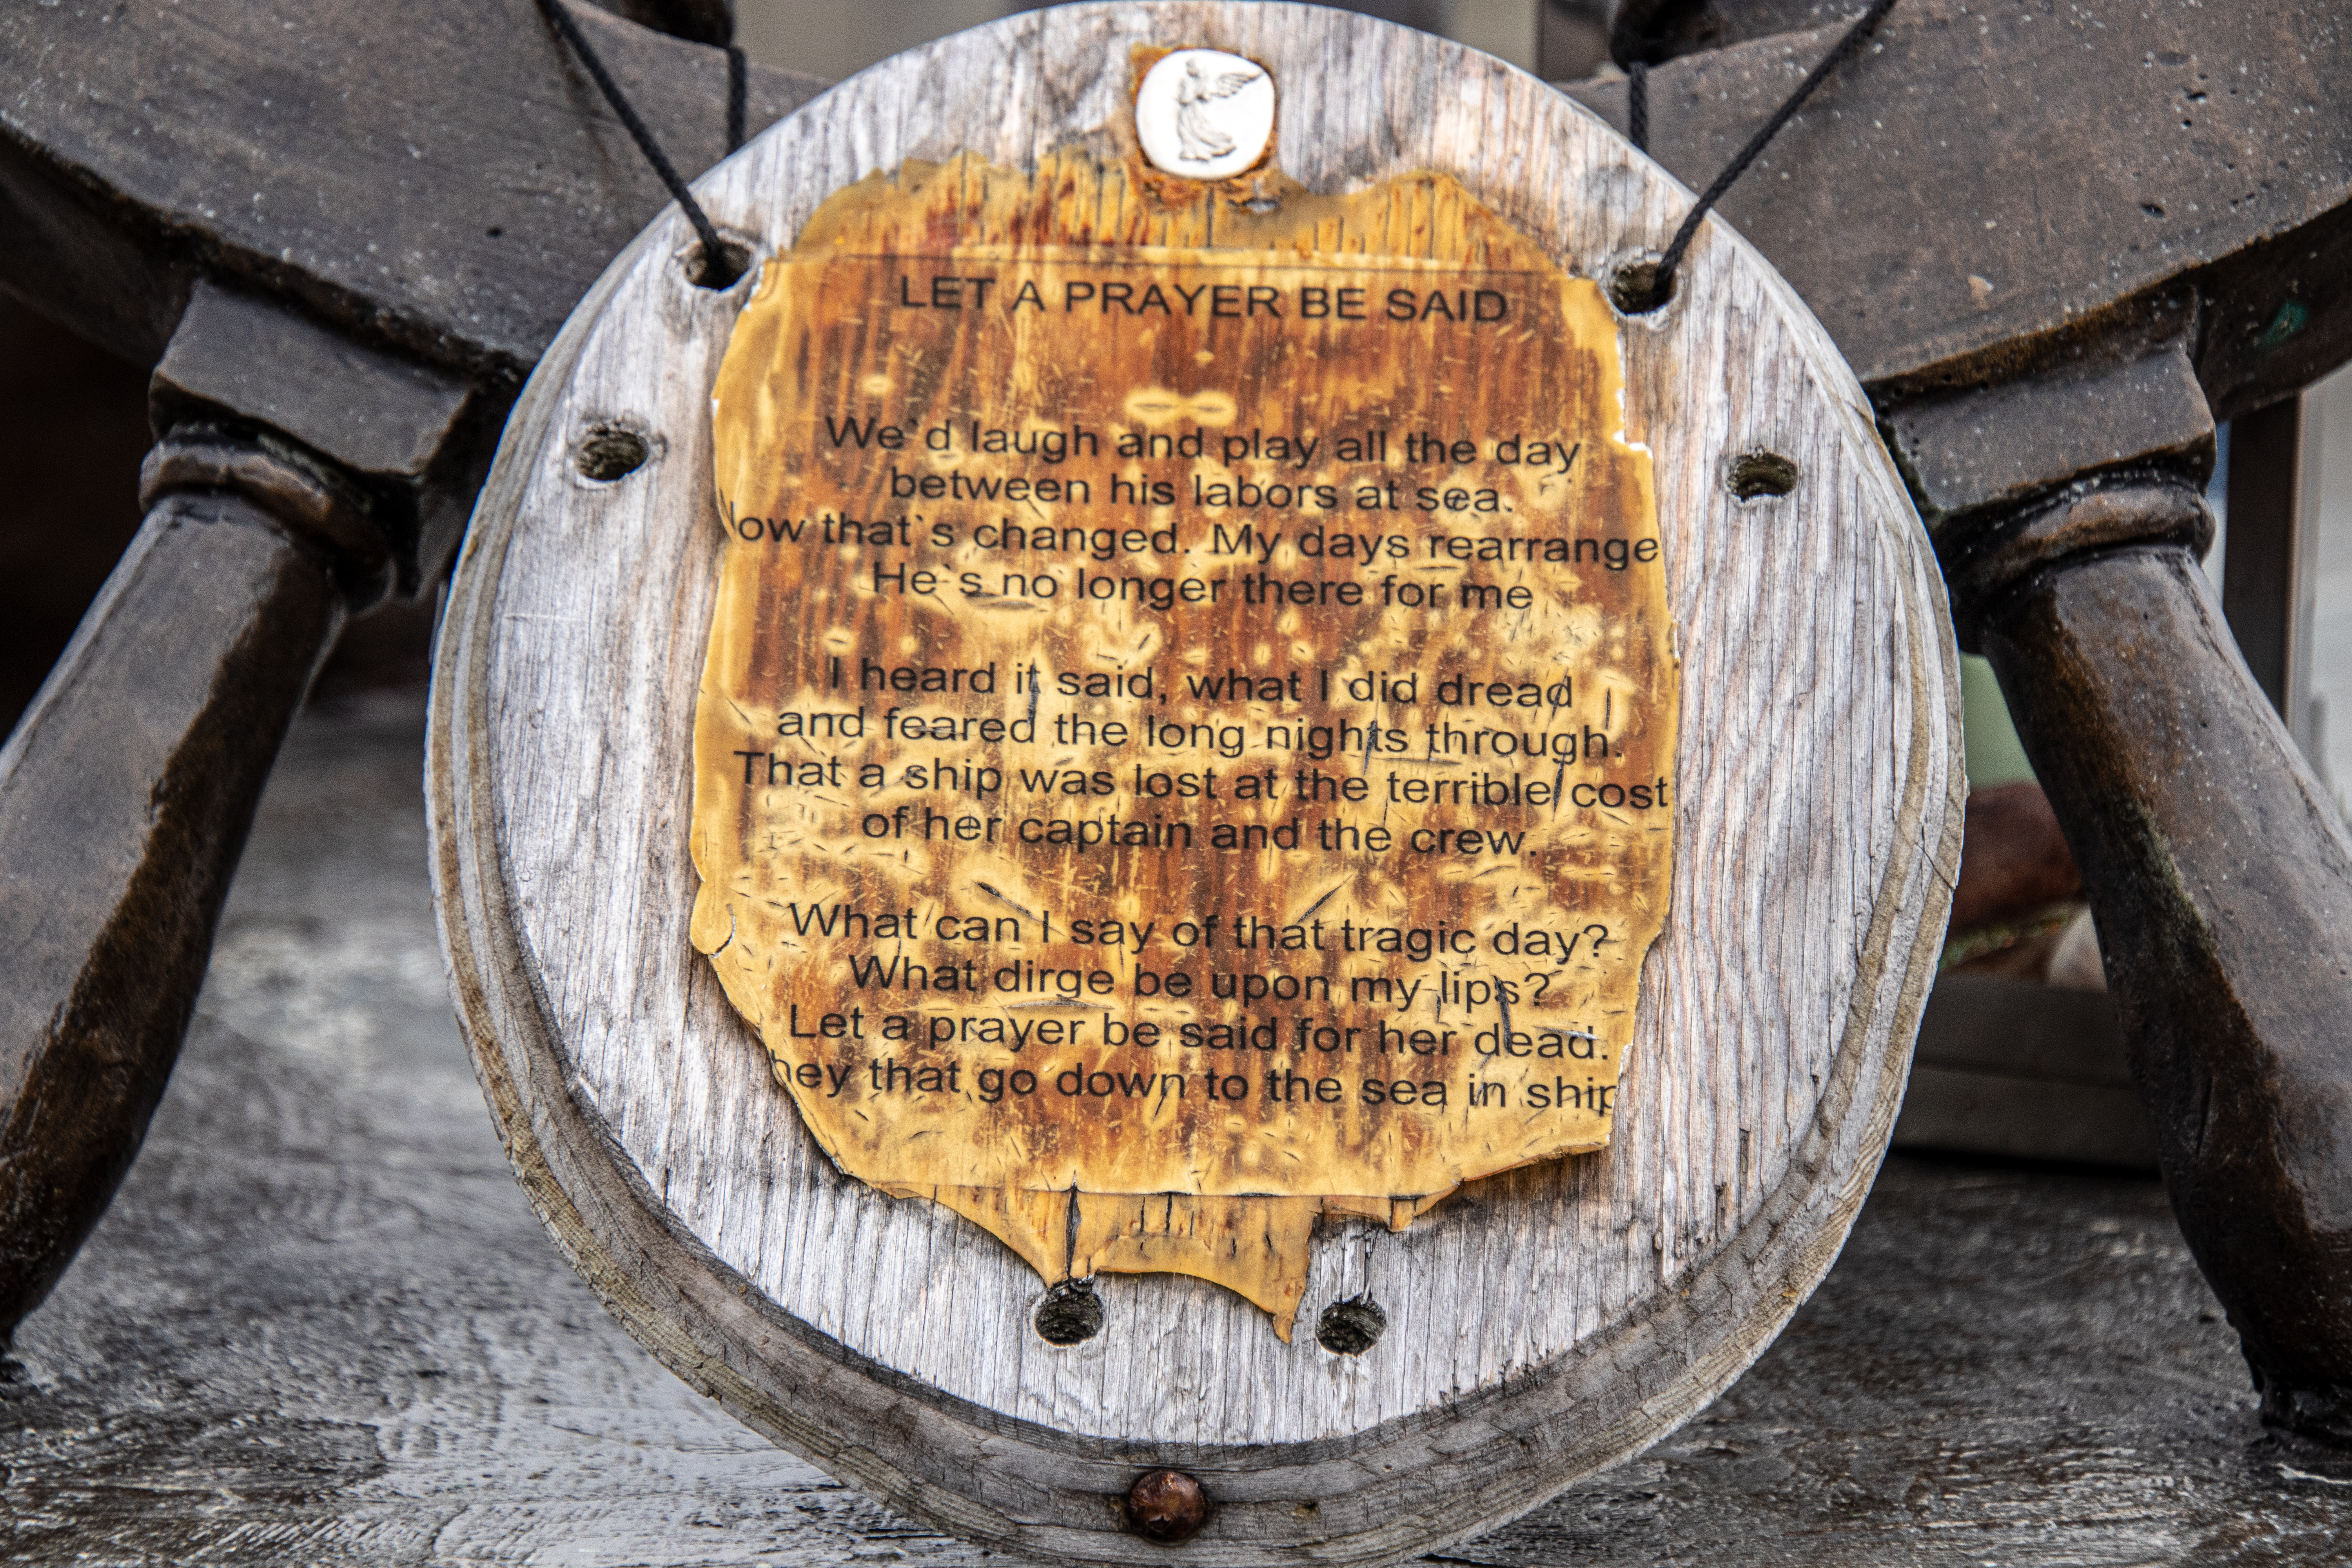 LET A PRAYER BE SAID
We'd laugh and play all the day
between his labors at sea.
ow that`s changed. My days rearrange
He`s no longer there for me
I heard it said, what I did dread
and feared the long nights through.
That a ship was lost at the terrible cost
of her captain and the crew.
What can I say of that tragic day?
What dirge be upon my lips?
Let a prayer be said for her dead.
hey that go down to the sea in ship